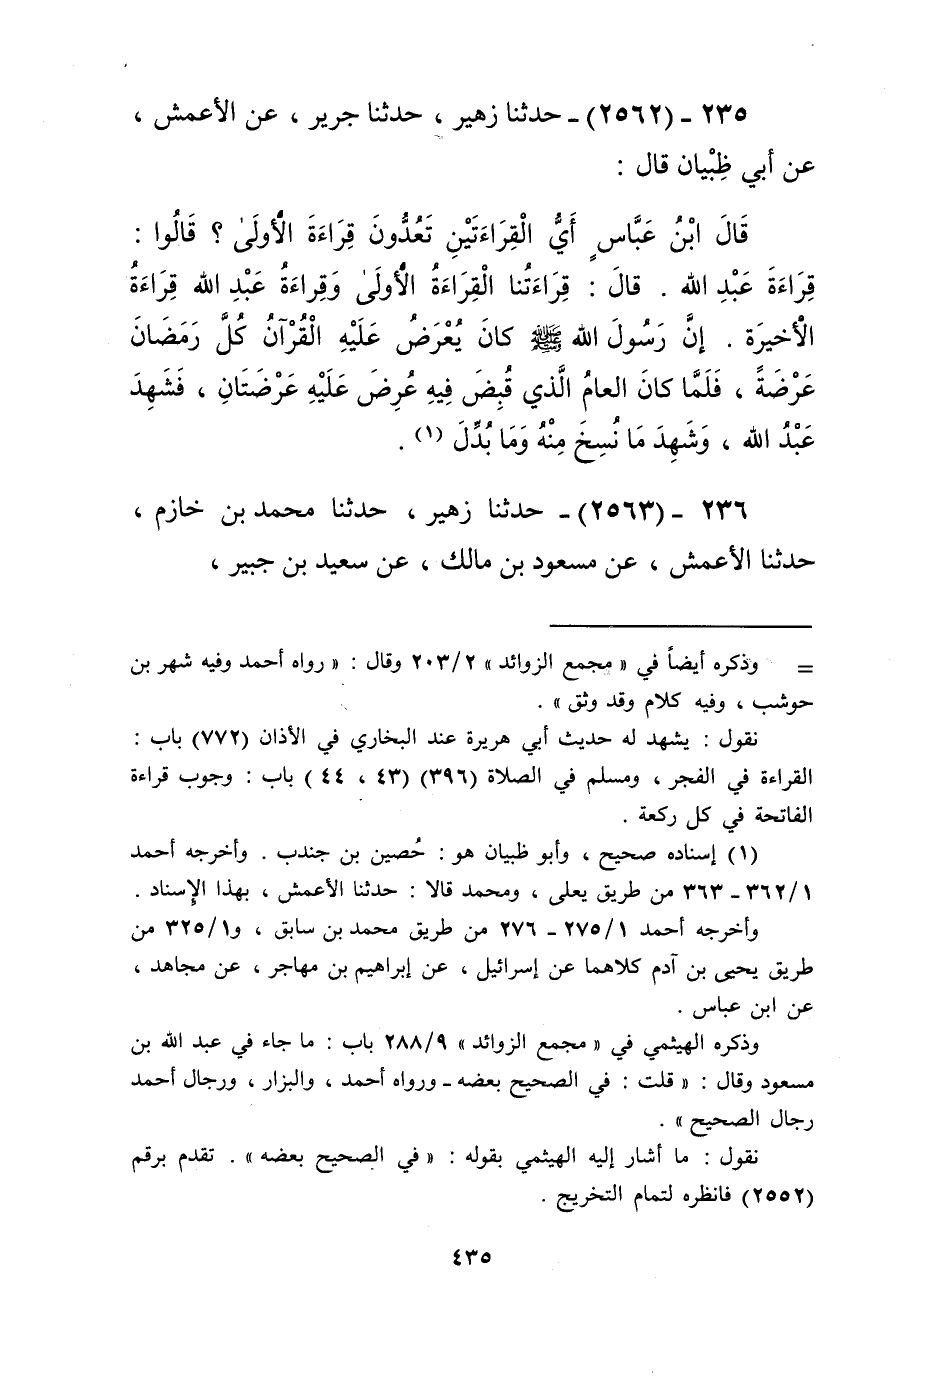 ٢٣٥ ـ (٢٥٦٢) ـ حدثنا زهير ، حدثنا جرير ، عن الأعمش ،
عن أبي ظِبْيان قال :
قَالَ ابْنُ عَبَّاسٍ أَيُّ الْقِرَاءَتَيْنِ تَعُدُّونَ قِرَاءَةَ الْأُولَىٰ ؟ قَالُوا :
قِرَاءَةَ عَبْدِ الله . قالَ : قِرَاءَتُنا الْقِرَاءَةُ الْأُولَىٰ وَقِراءَةُ عَبْدِ الله قِرَاءَةُ
الْأخيرَة . إِنَّ رَسُولَ الله ﷺ كانَ يُعْرَضُ عَلَيْهِ الْقُرْآنُ كُلَّ رَمَضَانَ
عَرْضَةً ، فَلَمَّا كانَ العامُ الَّذي قُبِضَ فِيهِ عُرِضَ عَلَيْهِ عَرْضَتَانِ ، فَشَهِدَ
عَبْدُ الله ، وَشَهِدَ مَا نُسِخَ مِنْهُ وَمَا بُدِّلَ (١) .
٢٣٦ ـ (٢٥٦٣) ـ حدثنا زهير ، حدثنا محمد بن خازم ،
حدثنا الأعمش ، عن مسعود بن مالك ، عن سعيد بن جبير ،
= وذكره أيضاً في « مجمع الزوائد » ٢٠٣/٢ وقال : « رواه أحمد وفيه شهر بن
حوشب ، وفيه كلام وقد وثق » .
نقول : يشهد له حديث أبي هريرة عند البخاري في الأذان (٧٧٢) باب :
القراءة في الفجر ، ومسلم في الصلاة (٣٩٦) (٤٣ ، ٤٤ ) باب : وجوب قراءة
الفاتحة في كل ركعة .
(١) إسناده صحيح ، وأبو ظبيان هو : حُصين بن جندب . وأخرجه أحمد
٣٦٢/١ ـ ٣٦٣ من طريق يعلى ، ومحمد قالا : حدثنا الأعمش ، بهذا الإِسناد .
وأخرجه أحمد ٢٧٥/١ ـ ٢٧٦ من طريق محمد بن سابق ، و٣٢٥/١ من
طريق يحيى بن آدم كلاهما عن إسرائيل ، عن إبراهيم بن مهاجر ، عن مجاهد ،
عن ابن عباس .
وذكره الهيثمي في « مجمع الزوائد » ٢٨٨/٩ باب : ما جاء في عبد الله بن
مسعود وقال : « قلت : في الصحيح بعضه ـ ورواه أحمد ، والبزار ، ورجال أحمد
رجال الصحيح » .
نقول : ما أشار إليه الهيثمي بقوله : « في الصحيح بعضه » . تقدم برقم
(٢٥٥٢) فانظره لتمام التخريج .
٤٣٥